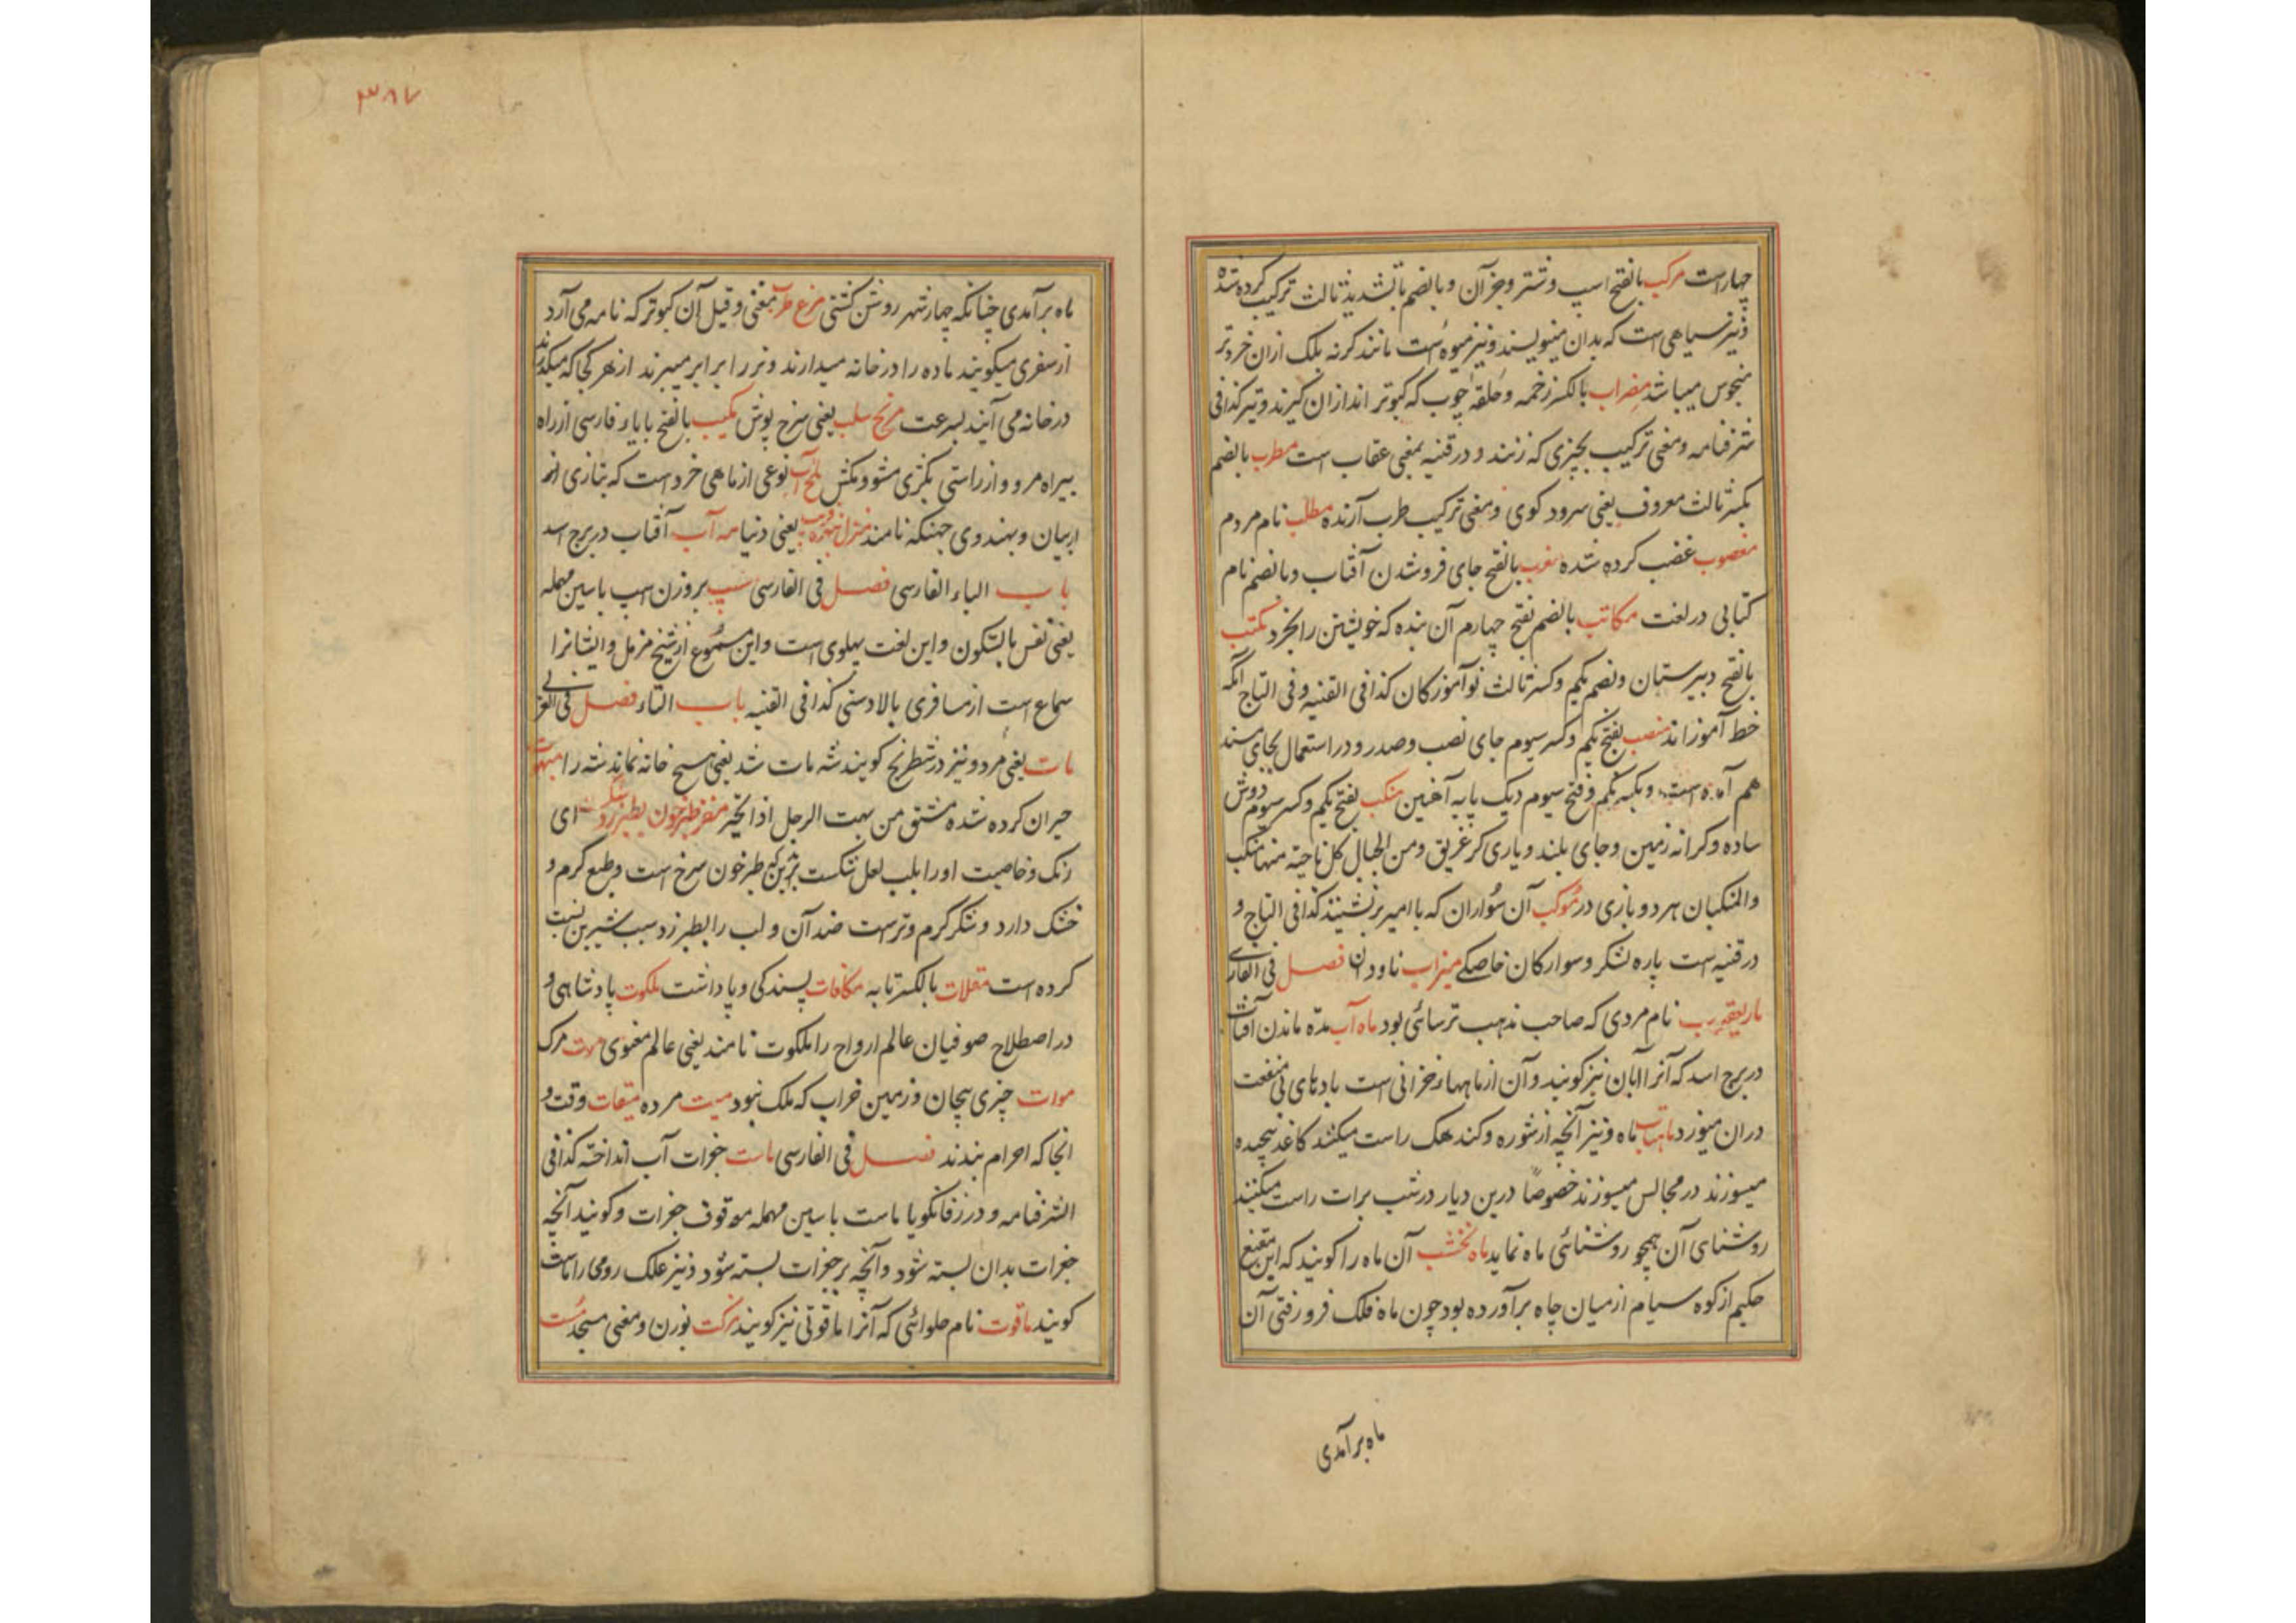 چهارست مرکب بالفتح اسپ و شتر و جز آن و بالضم با تشدید ثالث ترکیب کرده شده
و نیز سیاهی است که بدان مینویسند و نیز میوه است مانند کرنه بلک ازان خردتر
منجوس میباشد مضراب بالکسر زخمه و حلقه چوب که کبوتر اندازان کیرند و تیر کذا فی
شرفنامه و معنی ترکیب بچیزی که زنند و در قنیه بمعنی عقاب است مطرب بالضم
بکسر ثالث معروف یعنی سرود کوی و معنی ترکیب طرب آرنده مطلب نام مردم
مغصوب غضب کرده شده مغرب بالفتح جای فروشدن آفتاب و بالضم نام
کتابی در لغت مکاتب بالضم بفتح چهارم آن بنده که خویشتن را بخرد مکتب
بالفتح دبیرستان و بضم یکم و کسر ثالث نوآموزکان کذا فی القنیه و فی التاج آنکه
خط آموزاند منصب بفتح یکم و کسر سیوم جای نصب و صدر و در استعمال بجای مسند
هم آمده است و بکسر یکم و فتح سیوم دیک پایه آهنین منکب بفتح یکم و کسر سیوم دوش
ساده و کرانه زمین و جای بلند و یاری کر عریق و من الجبال کل ناحیته منها منکب
والمنکبان هر دو بازی در موکب آن سواران که با امیر برنشینند کذا فی التاج و
در قنیه است پاره لشکر و سوارکان خاصکے میزاب ناودان فصل فی الفارسی
ماریعقوب نام مردی که صاحب مذهب ترسائی بود ماه آب مده ماندن آفتاب
در برج اسد که آنرا آبان نیز کویند و آن از ماهها خزانی است بادهای بی منفعت
دران میوزد ماهتاب ماه و نیز آنچه از شوره و کندهک راست میکنند کاغذ پیچیده
میسوزند در مجالس میسوزند خصوصا درین دیار در شب برات راست میکنند
روشنای آن همچو روشنائی ماه نماید ماه نخشب آن ماه را کویند که ابن مقنع
حکیم از کوه سیام از میان چاه برآورده بود چون ماه فلک فرو رفتی آن
ماه برآمدی
۳۸۷
ماه برآمدی چنانکه چهار شهر روشن کشتی مرغ طرب بمعنی و قیل آن کبوتر که نامه می آرد
از سفری میکویند ماده را در خانه میدارند و نر را برابر میبرند از هر کجا که میکذرند
در خانه می آیند بسرعت مریخ سلب یعنی سرخ پوش مکیب بالفتح با یاء فارسی از راه
بیراه مرو و از راستی بکژی مشو و مکش ملخ آب نوعی از ماهی خرد است که بتازی انر
اربیان و بهندوی جهنکه نامند منزل یعنی دنیا مه آب آفتاب در برج اسد
باب الباء الفارسی فصل فی الفارسی بر وزن اسپ با سین مهمله
یعنی نفس بالسکون و این لغت پهلوی است و این مسموع از شیخ مزمل و ایشانرا
سماع است از مسافری بالادستی کذا فی القنیه باب التاء فصل فی العربی
مات یعنی مرد و نیز در شطرنج کویند شه مات شد یعنی هیچ خانه نماند شه را مبهوت
حیران کرده شده مشتق من بهت الرجل اذا تحیر ای
رنک و خاصیت او را بلب لعل شکست طبرخون سرخ است و طبع کرم و
خشک دارد و شکر کرم و ترست ضد آن و لب را بطبرزد سبب شیرین نسبت
کرده است مقلات بالکسر تابه مکافات پسندکی و پاداشت ملکوت پادشاهی و
در اصطلاح صوفیان عالم ارواح را ملکوت نامند یعنی عالم معنوی موت مرک
موات چیزی بیجان و زمین خراب که ملک نبود میت مرده میقات وقت و
انجا که احرام بندند فصل فی الفارسی ماست جغرات آب انداخته کذا فی
الشرفنامه و در زفانکویا ماست با سین مهمله موقوف جغرات و کویند آنچه
جغرات بدان بسته شود و آنچه بر جغرات بسته شود و نیز علک رومی را ماست
کویند ماقوت نام حلوائی که آنرا ماقوتی نیز کویند مزکت بوزن و معنی مسجد مست